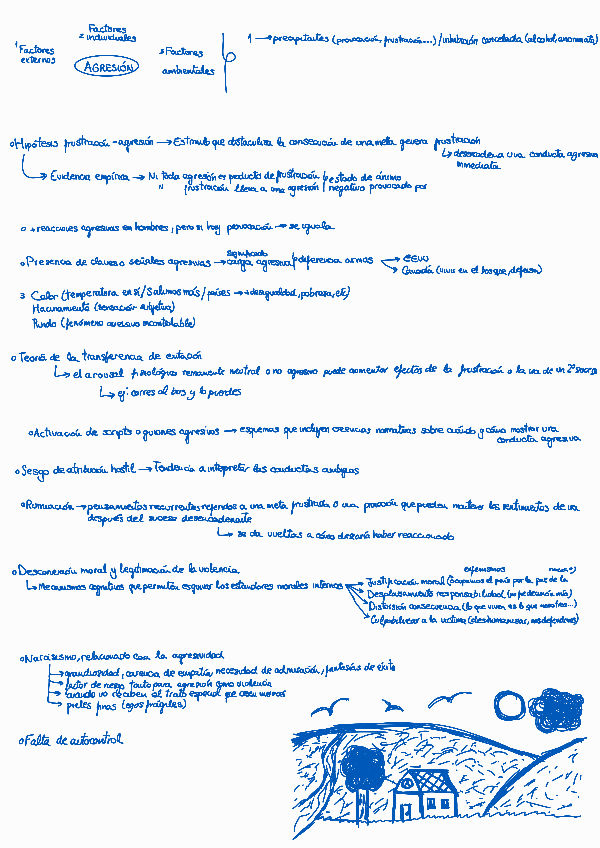 Factores
2 individuales
1 Factores
externos
AGRESIÓN
3 Factores
ambientales
1 → precipitantes (provocación, frustración...) / inhibición cancelada (alcohol, anonimato)
Hipótesis frustración-agresión → Estímulo que obstaculiza la consecución de una meta genera frustración
↳ desencadena una conducta agresiva
inmediata
Evidencia empírica → Ni toda agresión es producto de frustración
" frustración lleva a una agresión
estado de ánimo
negativo provocado por
+ reacciones agresivas en hombres, pero si hay provocación → se iguala
Presencia de claves o señales agresivas → carga agresiva
significado
diferencia armas
EEUU
Canadá (vivir en el bosque, defensa)
3 Calor (temperatura en sí / Salimos más / países → + desigualdad, pobreza, etc)
Hacinamiento (sensación subjetiva)
Ruido (fenómeno aversivo incontrolable)
Teoría de la transferencia de excitación
↳ el arousal fisiológico remanente neutral o no agresivo puede aumentar efectos de la frustración o la ira de un 2º suceso
↳ ej: corres al bus y lo pierdes
Activación de scripts o guiones agresivos → esquemas que incluyen creencias normativas sobre cuándo y cómo mostrar una
conducta agresiva
Sesgo de atribución hostil → Tendencia a interpretar las conductas ambiguas
Rumiación → pensamientos recurrentes referidos a una meta frustrada o una provocación que pueden mantener los sentimientos de ira
después del suceso desencadenante
↳ se da vueltas a cómo debería haber reaccionado
Desconexión moral y legitimación de la violencia
↳ Mecanismos cognitivos que permiten esquivar los estándares morales internos
eufemismos
Justificación moral (ocupamos el país por la paz de la
Desplazamiento responsabilidad (no fue decisión mía)
Distorsión consecuencia (lo que viven es lo que nosotros...)
Culpabilizar a la víctima (deshumanizar, nos defendemos)
Narcisismo, relacionado con la agresividad
grandiosidad, carencia de empatía, necesidad de admiración, fantasías de éxito
factor de riesgo tanto para agresión como violencia
cuando no reciben el trato especial que creen merecer
pieles finas (egos frágiles)
Falta de autocontrol